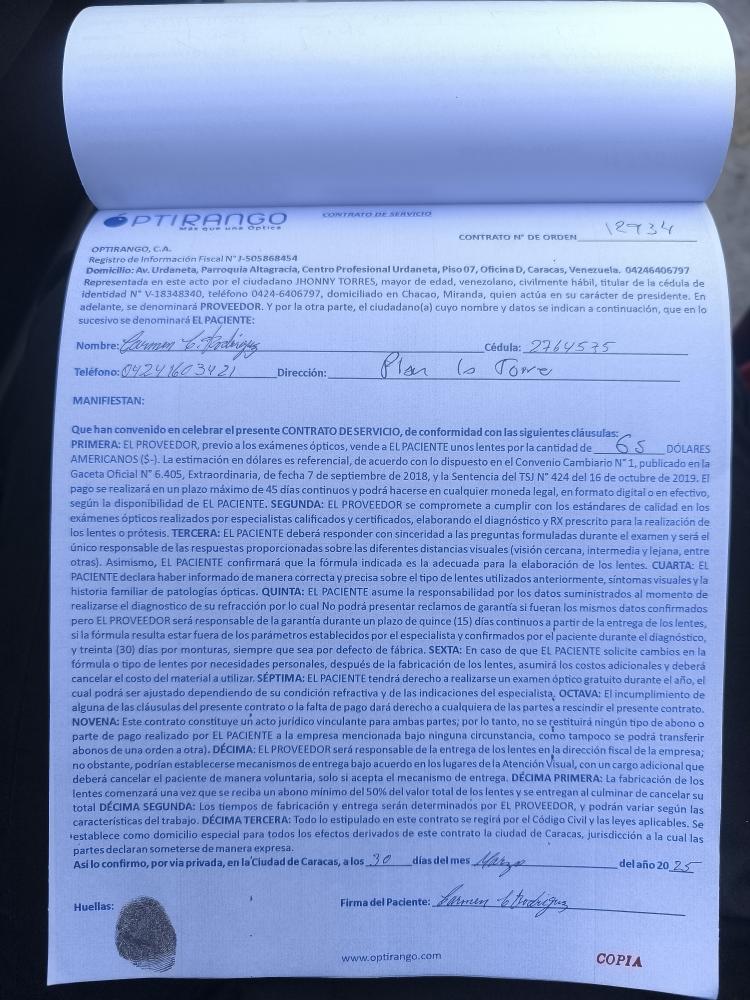 OPTIRANGO
Más que una Óptica
CONTRATO DE SERVICIO
CONTRATO N° DE ORDEN 12934
OPTIRANGO, C.A.
Registro de Información Fiscal N° J-505868454
Domicilio: Av. Urdaneta, Parroquia Altagracia, Centro Profesional Urdaneta, Piso 07, Oficina D, Caracas, Venezuela. 04246406797
Representada en este acto por el ciudadano JHONNY TORRES, mayor de edad, venezolano, civilmente hábil, titular de la cédula de
identidad N° V-18348340, teléfono 0424-6406797, domiciliado en Chacao, Miranda, quien actúa en su carácter de presidente. En
adelante, se denominará PROVEEDOR. Y por la otra parte, el ciudadano(a) cuyo nombre y datos se indican a continuación, que en lo
sucesivo se denominará EL PACIENTE:
Nombre: Carmen C. Rodriguez Cédula: 2764575
Teléfono: 04241603421 Dirección: Plan la Torre
MANIFIESTAN:
Que han convenido en celebrar el presente CONTRATO DE SERVICIO, de conformidad con las siguientes cláusulas:
PRIMERA: EL PROVEEDOR, previo a los exámenes ópticos, vende a EL PACIENTE unos lentes por la cantidad de 65 DÓLARES
AMERICANOS ($-). La estimación en dólares es referencial, de acuerdo con lo dispuesto en el Convenio Cambiario N° 1, publicado en la
Gaceta Oficial N° 6.405, Extraordinaria, de fecha 7 de septiembre de 2018, y la Sentencia del TSJ N° 424 del 16 de octubre de 2019. El
pago se realizará en un plazo máximo de 45 días continuos y podrá hacerse en cualquier moneda legal, en formato digital o en efectivo,
según la disponibilidad de EL PACIENTE. SEGUNDA: EL PROVEEDOR se compromete a cumplir con los estándares de calidad en los
exámenes ópticos realizados por especialistas calificados y certificados, elaborando el diagnóstico y RX prescrito para la realización de
los lentes o prótesis. TERCERA: EL PACIENTE deberá responder con sinceridad a las preguntas formuladas durante el examen y será el
único responsable de las respuestas proporcionadas sobre las diferentes distancias visuales (visión cercana, intermedia y lejana, entre
otras). Asimismo, EL PACIENTE confirmará que la fórmula indicada es la adecuada para la elaboración de los lentes. CUARTA: EL
PACIENTE declara haber informado de manera correcta y precisa sobre el tipo de lentes utilizados anteriormente, síntomas visuales y la
historia familiar de patologías ópticas. QUINTA: EL PACIENTE asume la responsabilidad por los datos suministrados al momento de
realizarse el diagnostico de su refracción por lo cual No podrá presentar reclamos de garantía si fueran los mismos datos confirmados
pero EL PROVEEDOR será responsable de la garantía durante un plazo de quince (15) días continuos a partir de la entrega de los lentes,
si la fórmula resulta estar fuera de los parámetros establecidos por el especialista y confirmados por el paciente durante el diagnóstico,
y treinta (30) días por monturas, siempre que sea por defecto de fábrica. SEXTA: En caso de que EL PACIENTE solicite cambios en la
fórmula o tipo de lentes por necesidades personales, después de la fabricación de los lentes, asumirá los costos adicionales y deberá
cancelar el costo del material a utilizar. SÉPTIMA: EL PACIENTE tendrá derecho a realizarse un examen óptico gratuito durante el año, el
cual podrá ser ajustado dependiendo de su condición refractiva y de las indicaciones del especialista. OCTAVA: El incumplimiento de
alguna de las cláusulas del presente contrato o la falta de pago dará derecho a cualquiera de las partes a rescindir el presente contrato.
NOVENA: Este contrato constituye un acto jurídico vinculante para ambas partes; por lo tanto, no se restituirá ningún tipo de abono o
parte de pago realizado por EL PACIENTE a la empresa mencionada bajo ninguna circunstancia, como tampoco se podrá transferir
abonos de una orden a otra). DÉCIMA: EL PROVEEDOR será responsable de la entrega de los lentes en la dirección fiscal de la empresa;
no obstante, podrían establecerse mecanismos de entrega bajo acuerdo en los lugares de la Atención Visual, con un cargo adicional que
deberá cancelar el paciente de manera voluntaria, solo si acepta el mecanismo de entrega. DÉCIMA PRIMERA: La fabricación de los
lentes comenzará una vez que se reciba un abono mínimo del 50% del valor total de los lentes y se entregan al culminar de cancelar su
total DÉCIMA SEGUNDA: Los tiempos de fabricación y entrega serán determinados por EL PROVEEDOR, y podrán variar según las
características del trabajo. DÉCIMA TERCERA: Todo lo estipulado en este contrato se regirá por el Código Civil y las leyes aplicables. Se
establece como domicilio especial para todos los efectos derivados de este contrato la ciudad de Caracas, jurisdicción a la cual las
partes declaran someterse de manera expresa.
Así lo confirmo, por vía privada, en la Ciudad de Caracas, a los 30 días del mes Marzo del año 2025
Huellas: Firma del Paciente: Carmen C Rodriguez
www.optirango.com COPIA